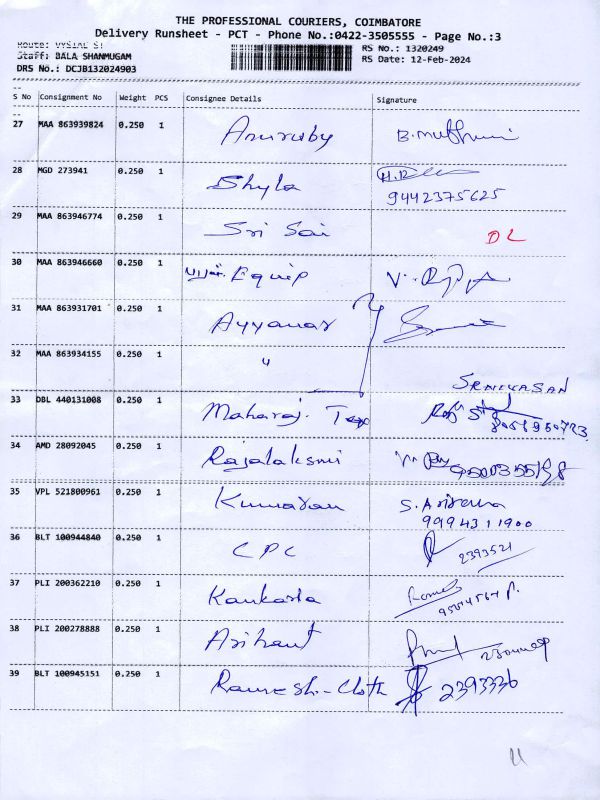 THE PROFESSIONAL COURIERS, COIMBATORE
Delivery Runsheet - PCT - Phone No.:0422-3505555 - Page No.:3
Route: VYSIAL ST
Staff: BALA SHANMUGAM
DRS No.: DCJB132024903
RS No.: 1320249
RS Date: 12-Feb-2024
S No Consignment No Weight PCS Consignee Details Signature
27 MAA 863939824 0.250 1 Anuruby B. muthu
28 MGD 273941 0.250 1 Shyla
9442375625
29 MAA 863946774 0.250 1 Sri Sai DL
30 MAA 863946660 0.250 1 Equip
31 MAA 863931701 0.250 1 Ayyanar
32 MAA 863934155 0.250 1 〃
SRNIVASAN
33 DBL 440131008 0.250 1 Maharaj. Tex
34 AMD 28092045 0.250 1 Rajalaksmi
35 VPL 521800961 0.250 1 Kumaran
9994311900
36 BLT 100944840 0.250 1 CPC 2393521
37 PLI 200362210 0.250 1 Kankaria
38 PLI 200278888 0.250 1 Arihant
39 BLT 100945151 0.250 1 Ramesh-Cloth 2393336